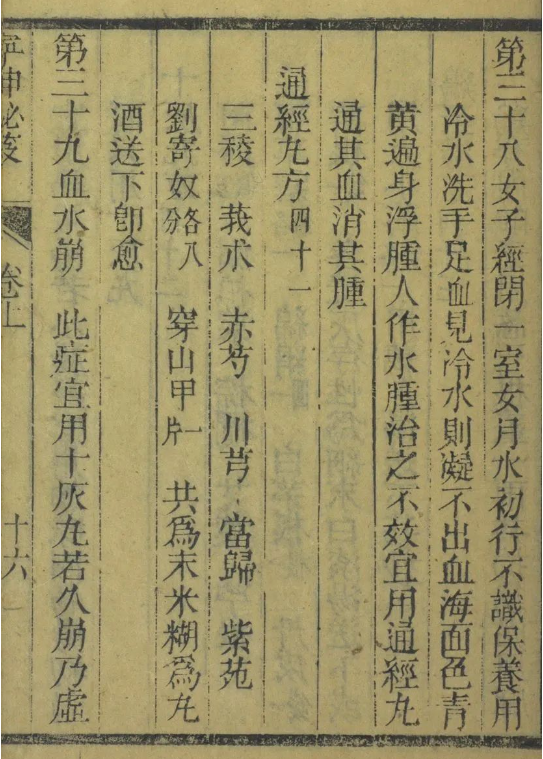 第三十八女子經閉一室女月水初行不識保養用
冷水洗手足血見冷水則凝不出血海面色青
黄遍身浮腫人作水腫治之不效宜用通經丸
通其血消其腫
通經丸方四十一
三稜 莪术 赤芍 川芎 當歸 紫菀
劉寄奴各八分 穿山甲一片 共爲末米糊爲丸
酒送下卽愈
第三十九血水崩 此症宜用十灰丸若久崩乃虛
卷上 十六